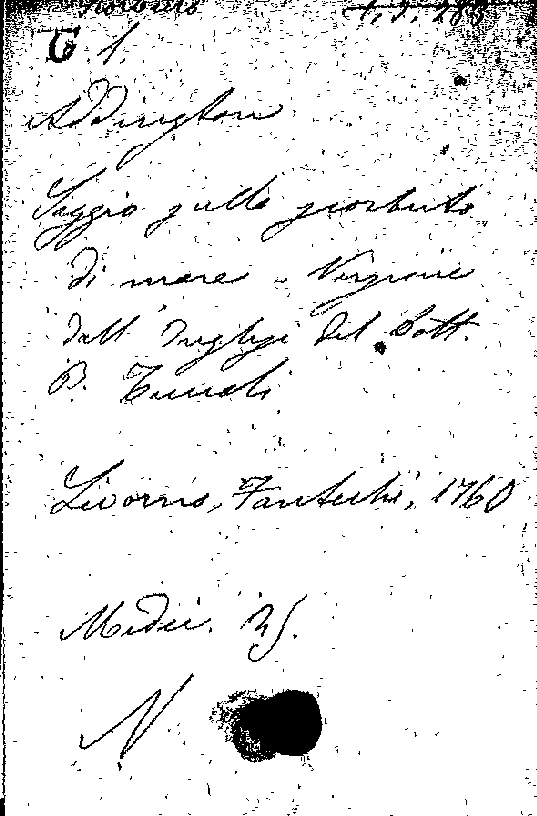 G. 1.
Addington
Saggio sullo scorbuto
di mare - Versione
dall' Inglese del Dott.
B.
Livorno, Fantechi, 1760
Medic. 35.
N